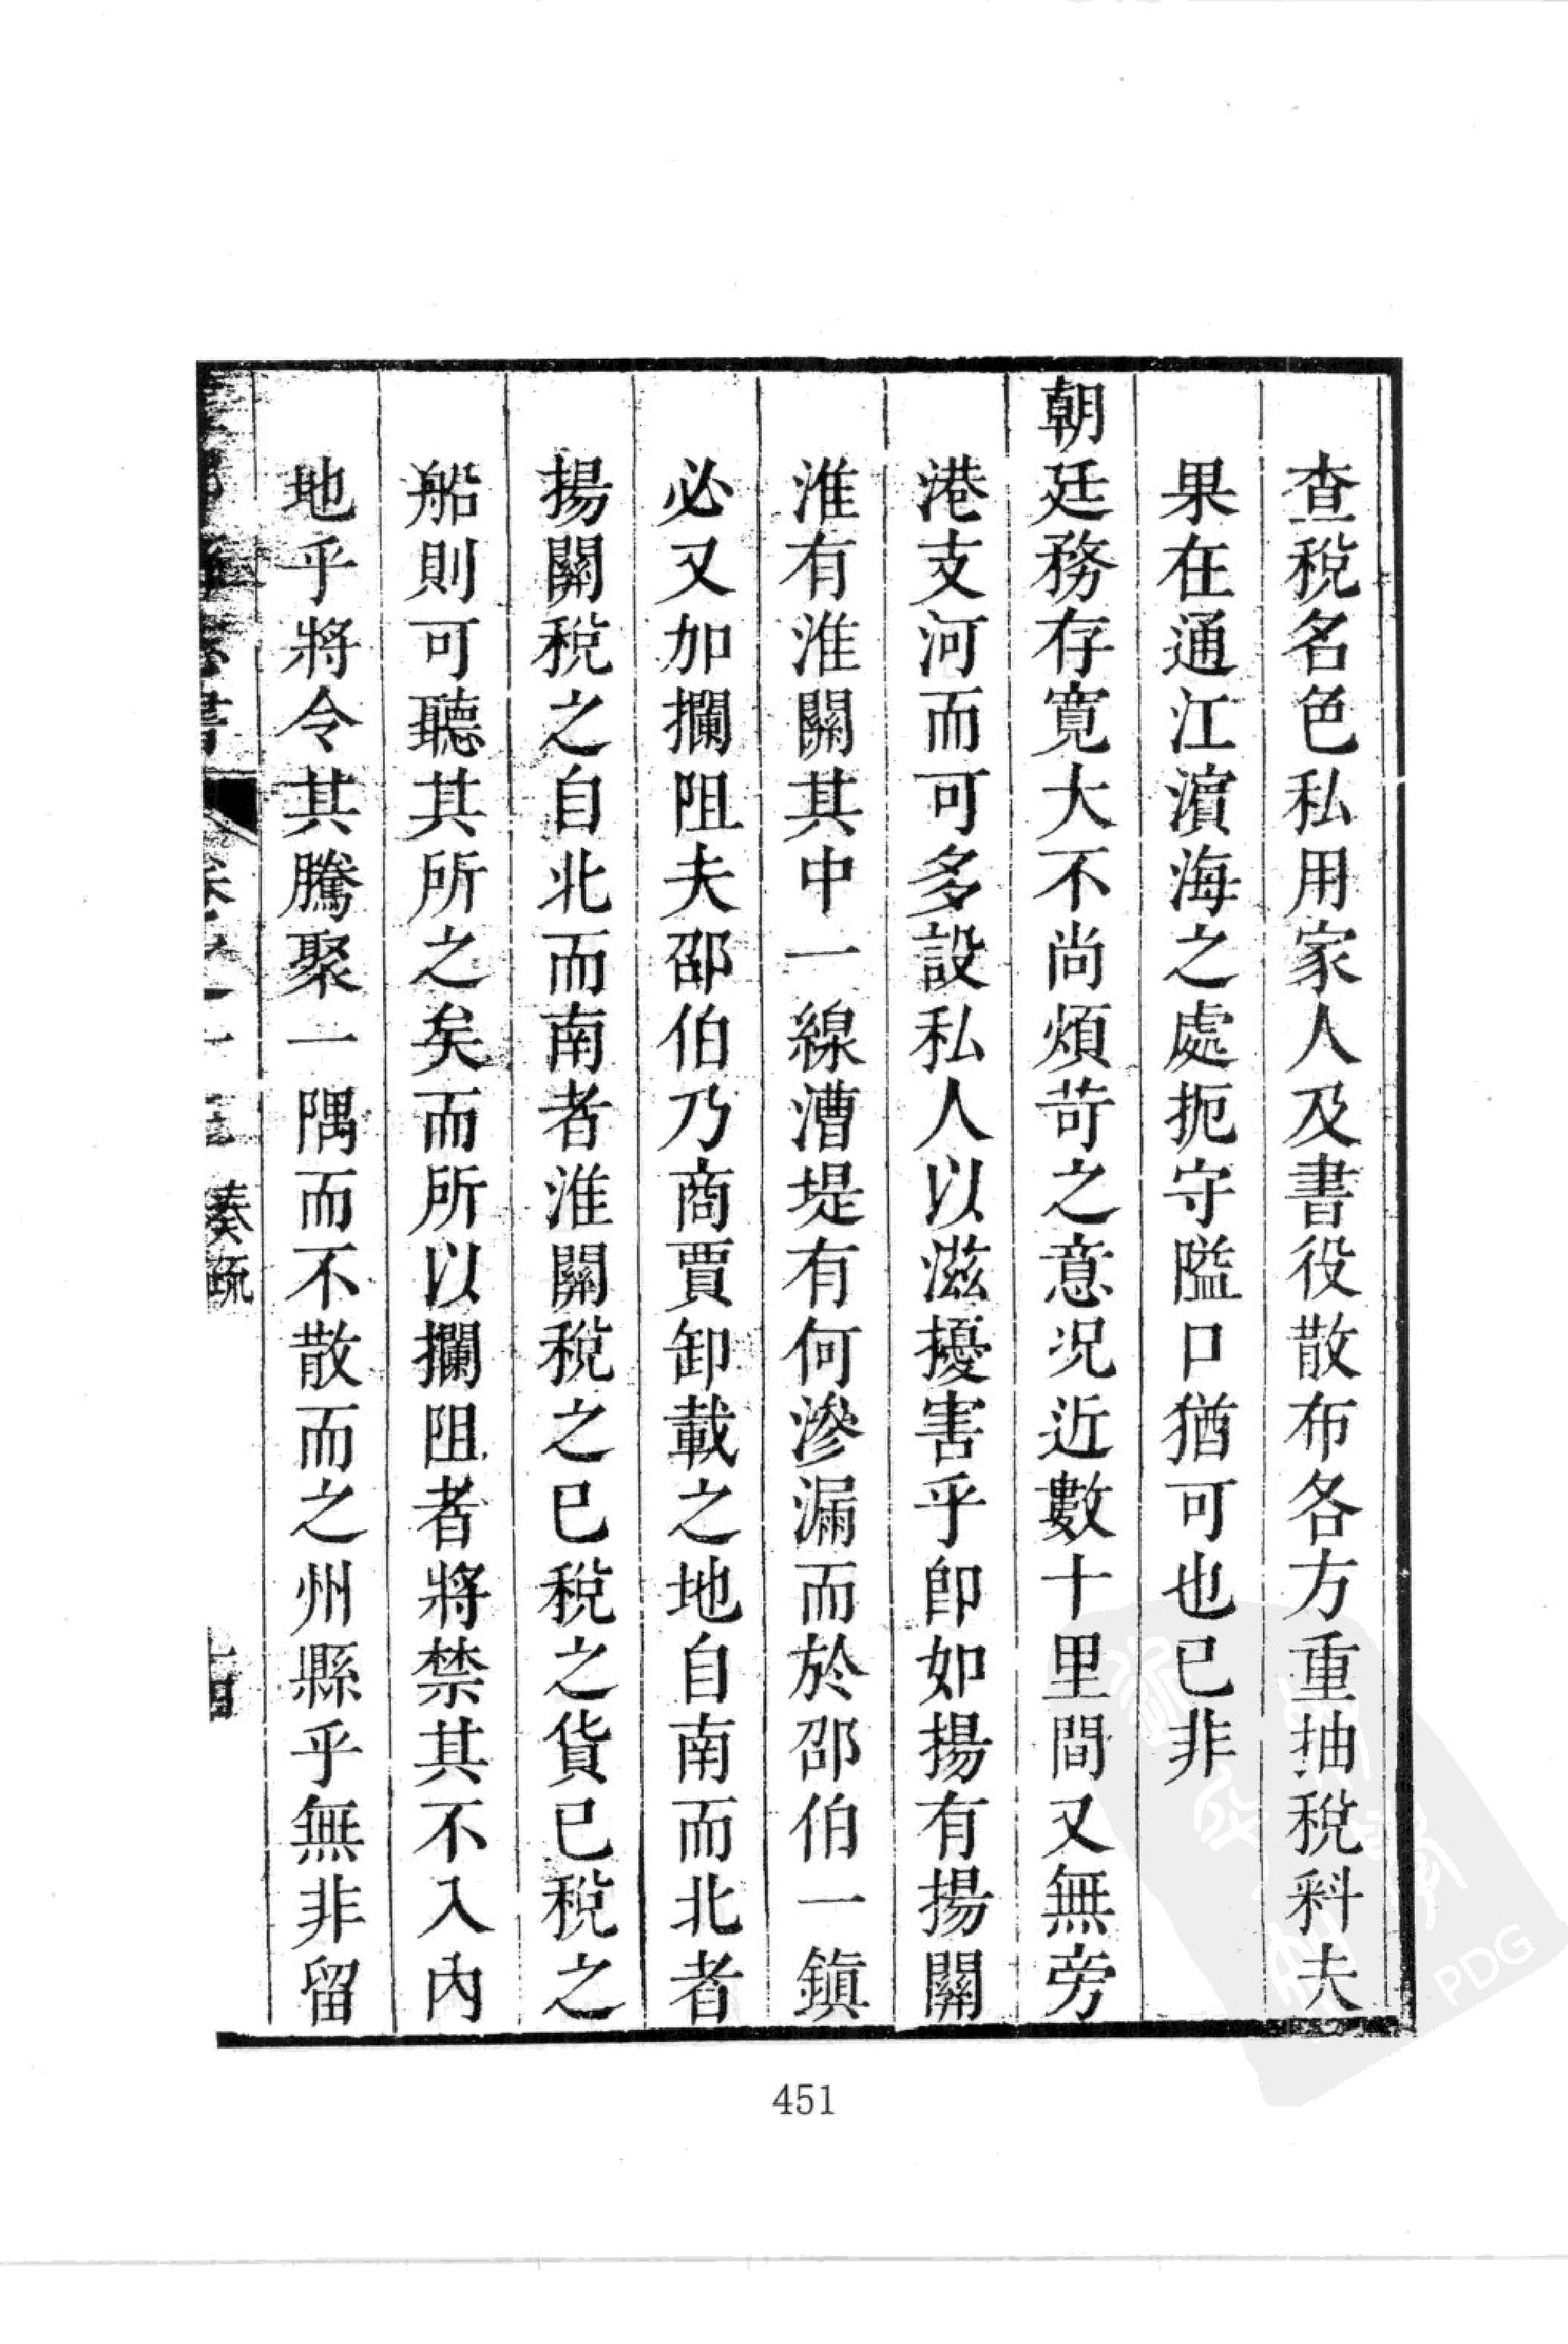 查稅名色私用家人及書役散布各方重抽稅料夫
果在通江濵海之處扼守隘口猶可也已非
朝廷務存寛大不尚煩苛之意况近數十里間又無旁
港支河而可多設私人以滋擾害乎卽如揚有揚關
淮有淮關其中一線漕堤有何滲漏而於邵伯一鎭
必又加攔阻夫邵伯乃商賈卸載之地自南而北者
揚關稅之自北而南者淮關稅之已稅之貨已稅之
船則可聽其所之矣而所以攔阻者將禁其不入內
地乎將令其騰聚一隅而不散而之州縣乎無非留
奏疏
451
PDG